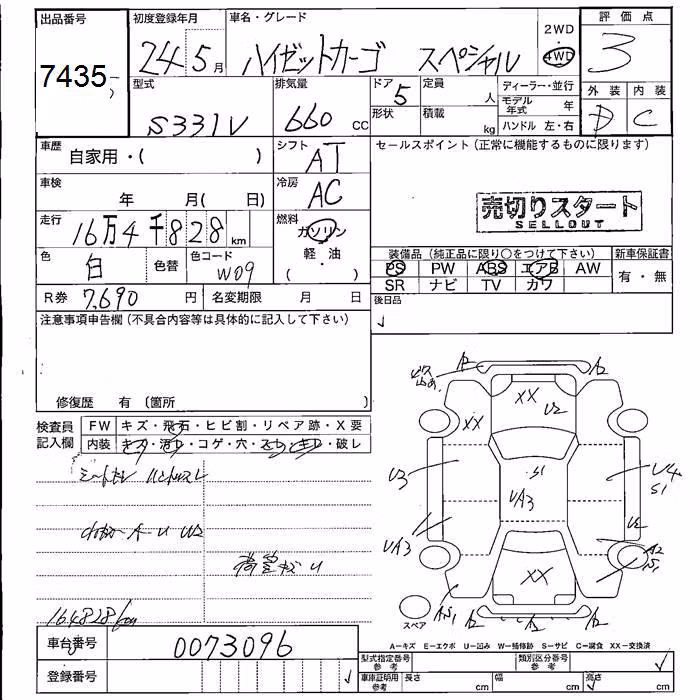 出品番号 初度登録年月 車名・グレード 2WD 評価点
7435 24 5月 ハイゼットカーゴ スペシャル 4WD 3
型式 排気量 ドア 定員 ディーラー・並行 外装 内装
S331V 660 cc 5 人 モデル年式 年 D C
形状 積載 kg ハンドル 左・右
車歴 自家用・( ) シフト AT セールスポイント (正常に機能するものに限ります)
車検 年 月( 日) 冷房 AC
売切りスタート
SELLOUT
走行 16万4千828km 燃料 ガソリン
軽・油
( ・ )
色 白 色替 色コード W09
装備品 (純正品に限り○をつけて下さい) 新車保証書
PS PW ABS エアB AW 有・無
SR ナビ TV カワ
R券 7,690円 名変期限 月 日 後日品
注意事項申告欄 (不具合内容等は具体的に記入して下さい)
修復歴 有 (箇所 )
検査員記入欄 FW キズ・飛石・ヒビ割・リペア跡・X要
内装 キズ・汚レ・コゲ・穴・スレ・キレ・破レ
A2 A2
XX U2
XX
U3 S1 U4
S1
UA3
UA3 U2
A2
S1
XX
AS1 A2 A2 A2
スペア
164828km
車台番号 0073096
A−キズ E−エクボ U−凹み W−補修跡 S−サビ C−腐食 XX−交換済
登録番号
型式指定番号参考 類別区分番号参考
車庫証明用参考 長さ cm 幅 cm 高さ cm